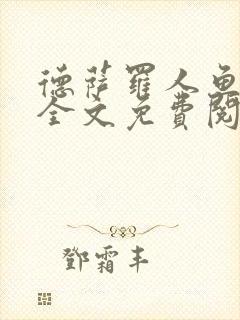 德萨罗人鱼
全文免费阅
邓霜丰